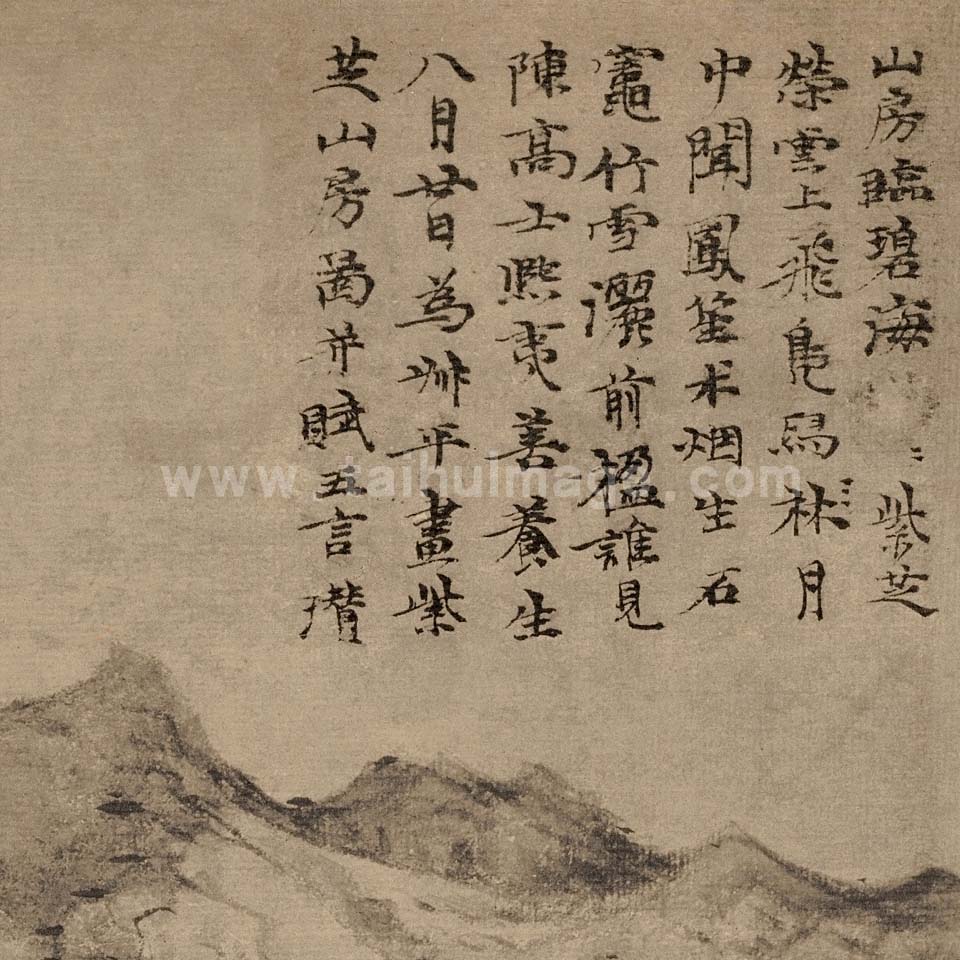 山房臨碧海 紫芝
榮雲上飛鳧舄林月
中聞鳳笙术烟生石
竈竹雪灑前楹誰見
陳高士熙夷善養生
八月廿日為叔平畫紫
芝山房啚并賦五言瓚
www.taihuimage.com